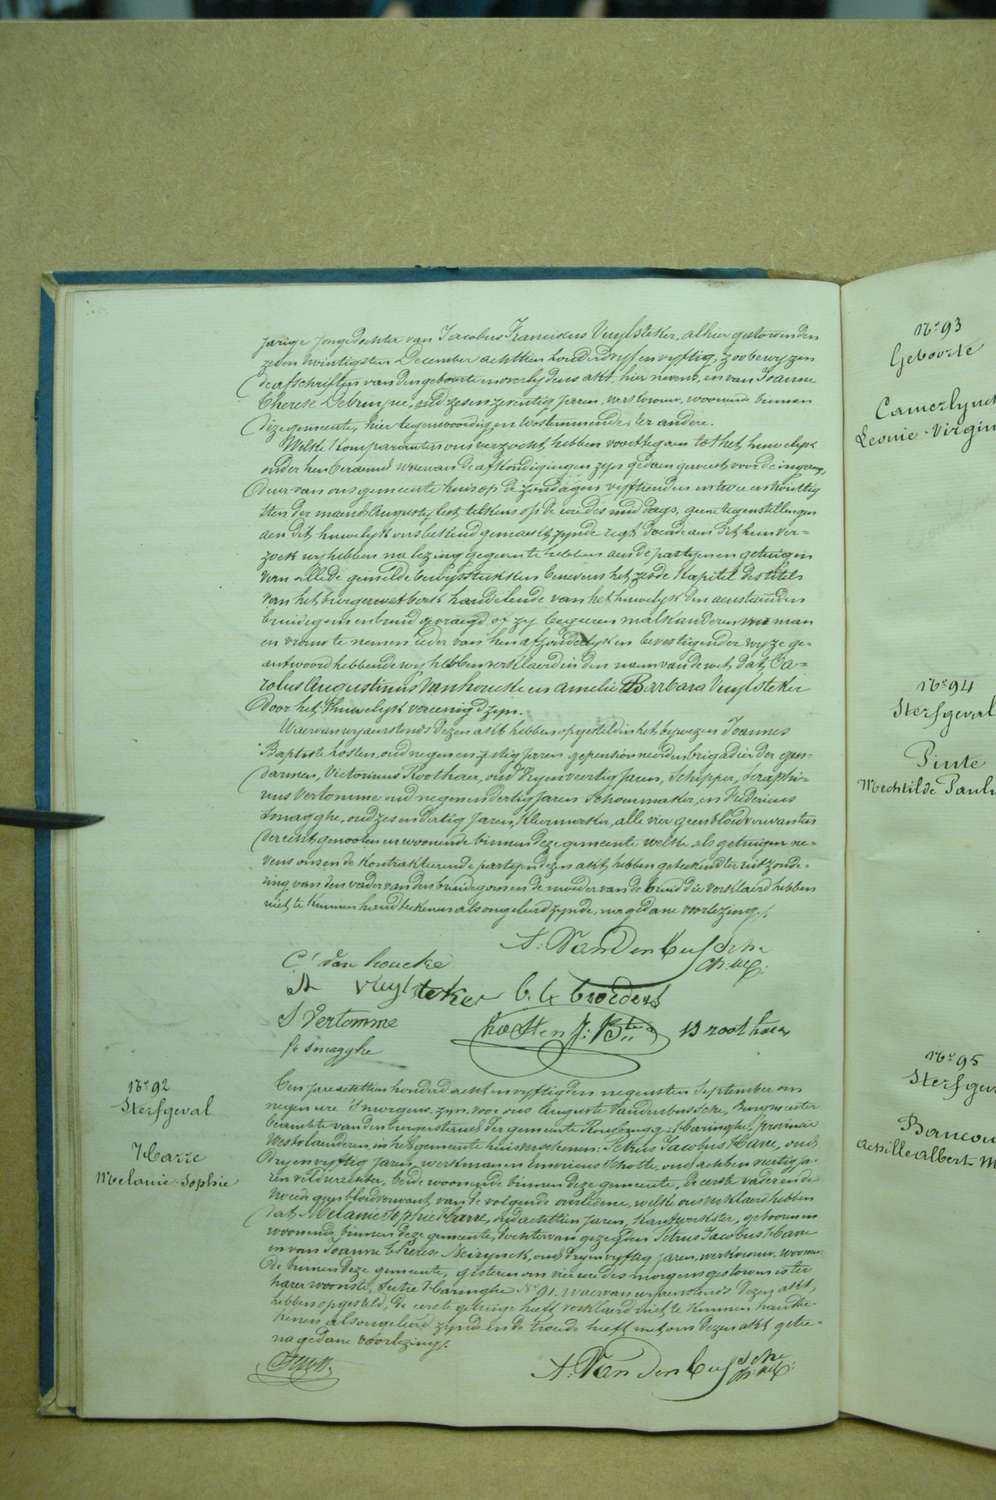 jarige jongedochter van Jacobus Franciscus Vuylsteker, alhier gestorven den
zeven twintigsten December achttien honderd vyf en vyftig, zoo bewyzen
de afschriften van den geboorte en overlydens akt, hier nevens, en van Joanne
Therese Debruyne, oud zes en zeventig jaren, werkvrouw, woonende binnen
deze gemeente, hier tegenwoordig en toestemmende, ter andere.
Welke komparanten ons verzocht hebben voort te gaan tot het huwelyk
onder hen beraemd waervan de afkondigingen zyn gedaen geweest voor de ingang
deur van ons gemeente huis op de zondagen vyftienden en twee en twintig
sten der maend Augusty lest, telkens op de ure des middags, geene tegenstellingen
aen dit huwelyk ons bekend gemaekt zynde regt doende aen het hun ver-
zoek wy hebben na lezing gegeven te hebben aen de partyen en getuigen
van alle de gemelde bewysstukken benevens het zesde kapitel des titels
van het burger wetboek handelende van het huwelyk den aenstaenden
bruidegom en bruid gevraegd of zy begeeren malkanderen voor man
en vrouw te nemen ieder van hen afzonderlyk en bevestigender wyze ge-
antwoord hebbende wy hebben verklaerd in den naem van de wet, dat Ca-
rolus Augustinus Vanhoucke en Amelie Barbara Vuylsteker
door het huwelyk vereenigd zyn.
Waervan wy aenstonds dezen akt hebben opgesteld in het bywezen Joannes
Baptiste Kosten, oud negen en zestig jaren gepensioneerden brigadier der gen-
darmen, Victorinus Roothaer, oud dry en veertig jaren, Schipper, Seraphi-
nus Vertomme oud negen en dertig jaren Schoenmaker, en Fredericus
Smagghe, oud zes en dertig jaren, kleermaker, alle vier geen bloedverwanten
der echtgenooten en woonende binnen deze gemeente welke als getuigen ne-
vens ons en de kontrakteerende partyen dezen akt hebben geteekend ter uitzonde-
ring van den vader van den bruidegom en de moeder van de bruid die verklaerd hebben
niet te kunnen handteekenen als ongeleerd zynde, na gedane voorlezing.
A: VanDenbussche
C. Van houcke
A vuylsteker
S Vertomme
Kosten J: Bte
B roothaer
fr smagghe
No 92
Sterfgeval
Harre
Melanie-Sophie
Een jaer achttien honderd acht en vyftig den negensten September om
negen ure 's morgens, zyn, voor ons Auguste Vandenbussche, Burgmeester
beambte van den burgerstaet der gemeente Rousbrugge-Haringhe, provincie
Westvlaenderen, in het gemeente huis verschenen: Petrus Jacobus Harre, oud
dry en vyftig jaren, werkman en Livinus Tholle, oud acht en veertig ja-
ren veldwachter, beide woonende binnen deze gemeente, de eerste vader en de
tweede geen bloedverwant van de volgende overledene, welke ons verklaerd hebben
dat Melanie Sophie Harre, oud achttien jaren, kantwerkster, geboren en
woonende binnen deze gemeente, dochter van gezegden Petrus Jacobus Harre
en van Joanne Therese Neirynck, oud dry en vyftig jaren, werkvrouw, woonen-
de binnen deze gemeente, gisteren om vier ure des morgens gestorven is ter
harer woonste, Sectie Haringhe No 91. waervan wy aenstonds dezen akt
hebben opgesteld, de eerste getuige heeft verklaerd niet te kunnen handtee-
kenen als ongeleerd zynde en de tweede heeft met ons dezen akt getee-
na gedane voorlezing.
A: Vandenbussche
No 93
Geboorte
Camerlynck
Leonie-Virgin
No 94
Sterfgeval
Pinte
Mechtilde Paul
No 95
Sterfgev
Bancou
Achille Albert-M